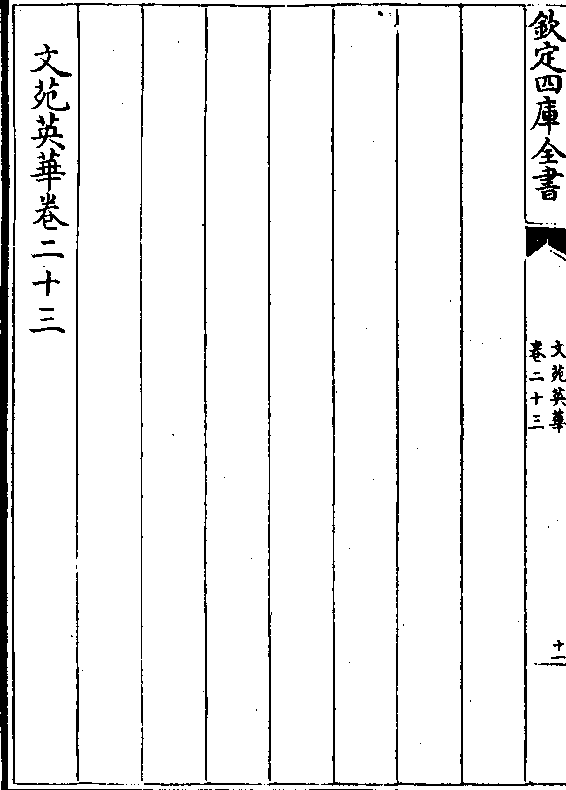 欽定四庫全書
文苑英華
卷二十三
十一
文苑英華卷二十三